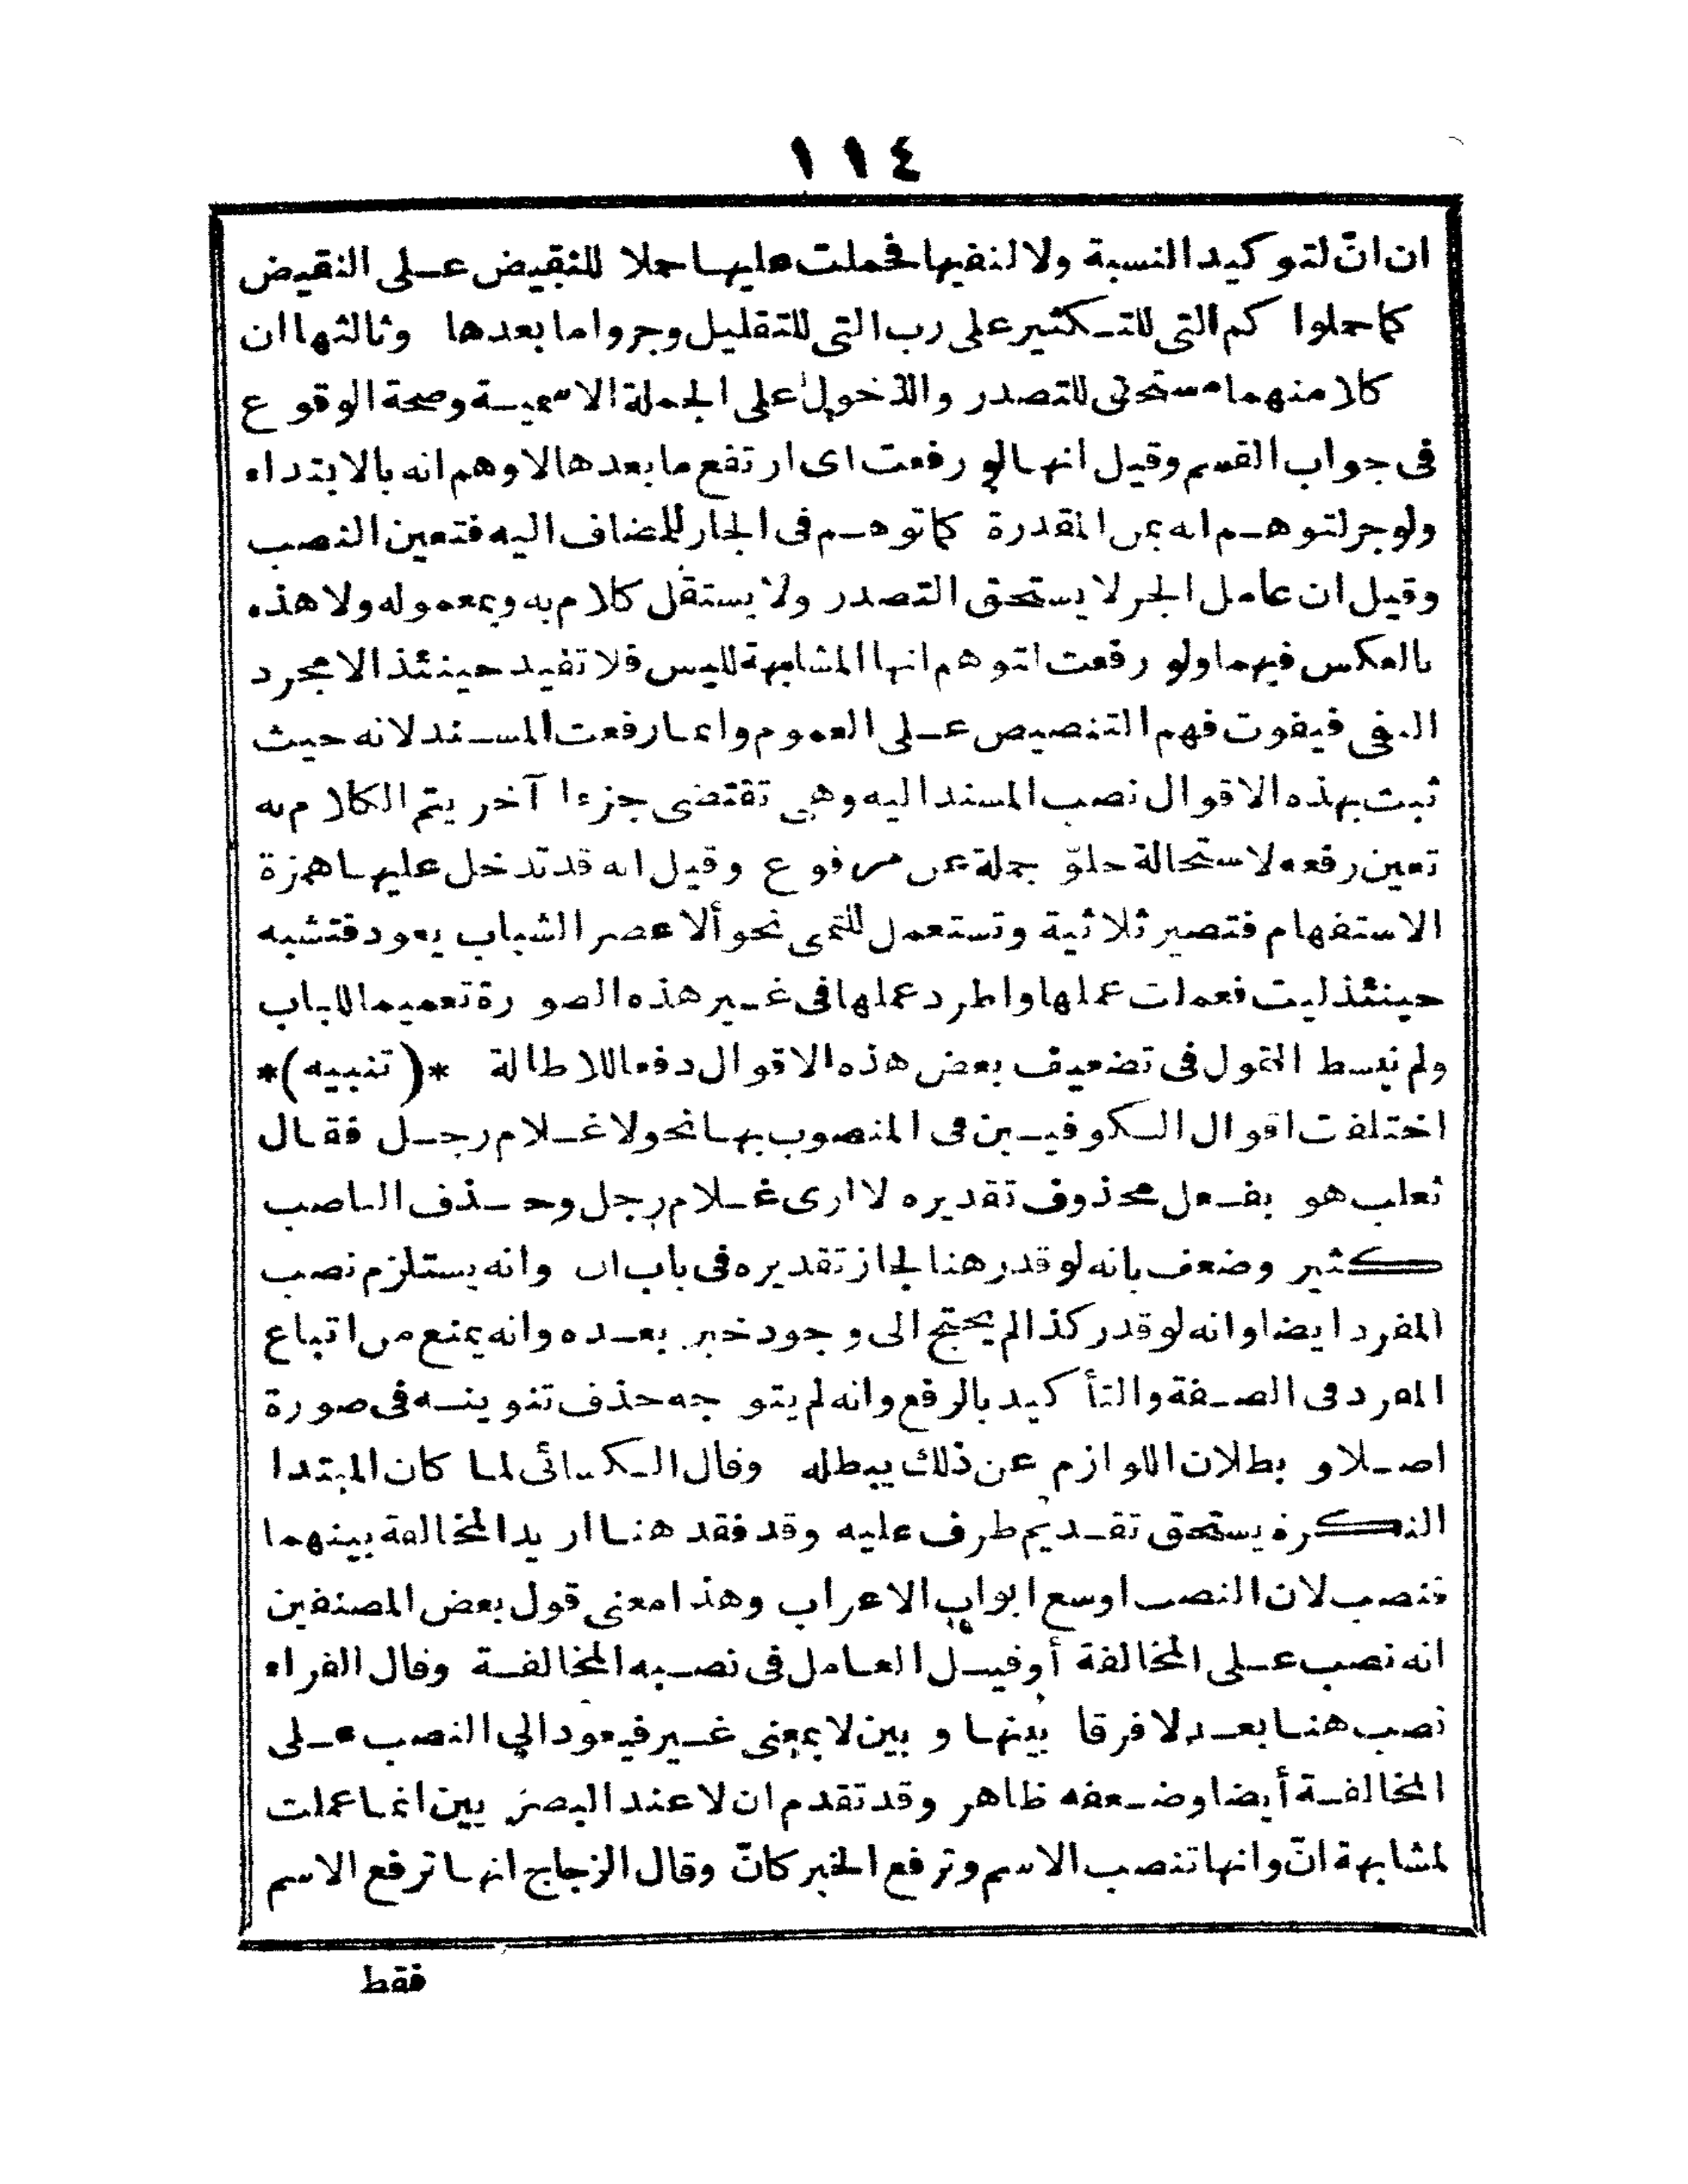 ١١٤
ان انّ لتوكيد النسبة ولا لنفيها فحملت عليها حملا للنقيض على النقيض
كما حملوا كم التى للتكثير على رب التى للتقليل وجروا ما بعدها وثالثها ان
كلا منهما مستحق للتصدر والدخول على الجملة الاسمية وصحة الوقوع
فى جواب القسم وقيل انها لو رفعت اى ارتفع ما بعدها لاوهم انه بالابتداء
ولو جر لتوهم انه بمن المقدرة كما توهم فى الجار للمضاف اليه فتعين النصب
وقيل ان عامل الجر لا يستحق التصدر ولا يستقل كلام به وبمعموله ولا هذه
بالعكس فيهما ولو رفعت لتوهم انها المشابهة لليس فلا تفيد حينئذ الا مجرد
النفى فيفوت فهم التنصيص على العموم وانما رفعت المسند لانه حيث
ثبت بهذه الاقوال نصب المسند اليه وهى تقتضى جزءا آخر يتم الكلام به
تعين رفعه لاستحالة خلوّ جملة عن مرفوع وقيل انه قد تدخل عليها همزة
الاستفهام فتصير ثلاثية وتستعمل للتمنى نحو ألا عصر الشباب يعود فتشبه
حينئذ ليت فعملت عملها واطرد عملها فى غير هذه الصورة تعميما للباب
ولم نبسط القول فى تضعيف بعض هذه الاقوال دفعا للاطالة *(تنبيه)*
اختلفت اقوال الكوفيين فى المنصوب بها نحو لا غلام رجل فقال
ثعلب هو بفعل محذوف تقديره لا ارى غلام رجل وحذف الناصب
كثير وضعف بانه لو قدر هنا لجاز تقديره فى باب ان وانه يستلزم نصب
المفرد ايضا وانه لو قدر كذا لم يحتج الى وجود خبر بعده وانه يمنع من اتباع
المفرد فى الصفة والتأكيد بالرفع وانه لم يتوجه حذف تنوينه فى صورة
اصلا و بطلان اللوازم عن ذلك يبطله وقال الكسائى لما كان المبتدا
النكرة يستحق تقديم ظرف عليه وقد فقد هنا اريد المخالفة بينهما
فنصب لان النصب اوسع ابواب الاعراب وهذا معنى قول بعض المصنفين
انه نصب على المخالفة أو قيل العامل فى نصبه المخالفة وقال الفراء
نصب هنا بعد لا فرقا بينها و بين لا بمعنى غير فيعود الى النصب على
المخالفة أيضا وضعفه ظاهر وقد تقدم ان لا عند البصريين انما عملت
لمشابهة انّ وانها تنصب الاسم وترفع الخبر كانّ وقال الزجاج انها ترفع الاسم
فقط